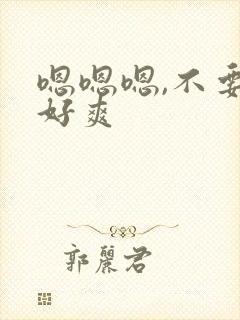 嗯嗯嗯,不要
好爽
郭麗君